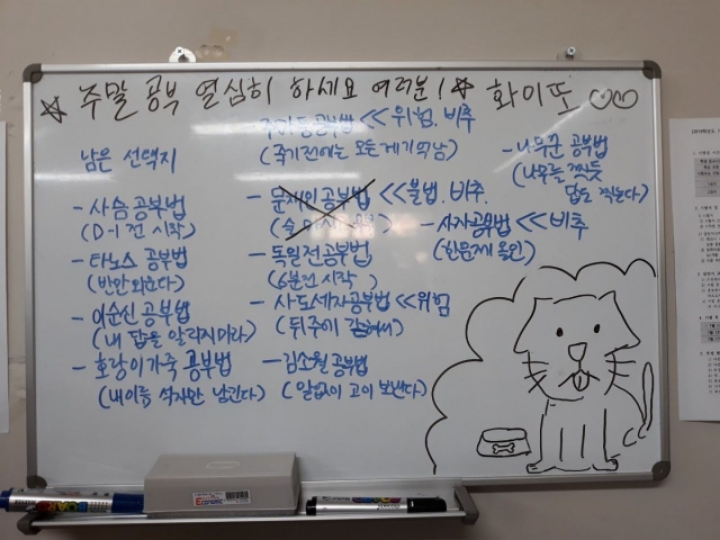 ☆ 주말 공부 열심히 하세요 여러분! ☆ 화이또 ♡♡
남은 선택지
- 사슴공부법
(D-1전 시작)
- 타노스 공부법
(반만 외운다)
- 이순신 공부법
(내 답을 알리지마라)
- 호랑이가죽 공부법
(내이름 석자만 남긴다)
- 주마등공부법 << 위험. 비추
(죽기전에는 모든게기억남)
- 문재인공부법 << 불법. 비추.
- 독일전공부법
(6분전 시작)
- 사도세자공부법 << 위험
(뒤주에 갇혀서)
- 김소월 공부법
(말없이 고이 보낸다)
- 나무꾼 공부법
(나무를 찍듯
답도 찍는다)
- 사자공부법 << 비추
(한문제 올인)